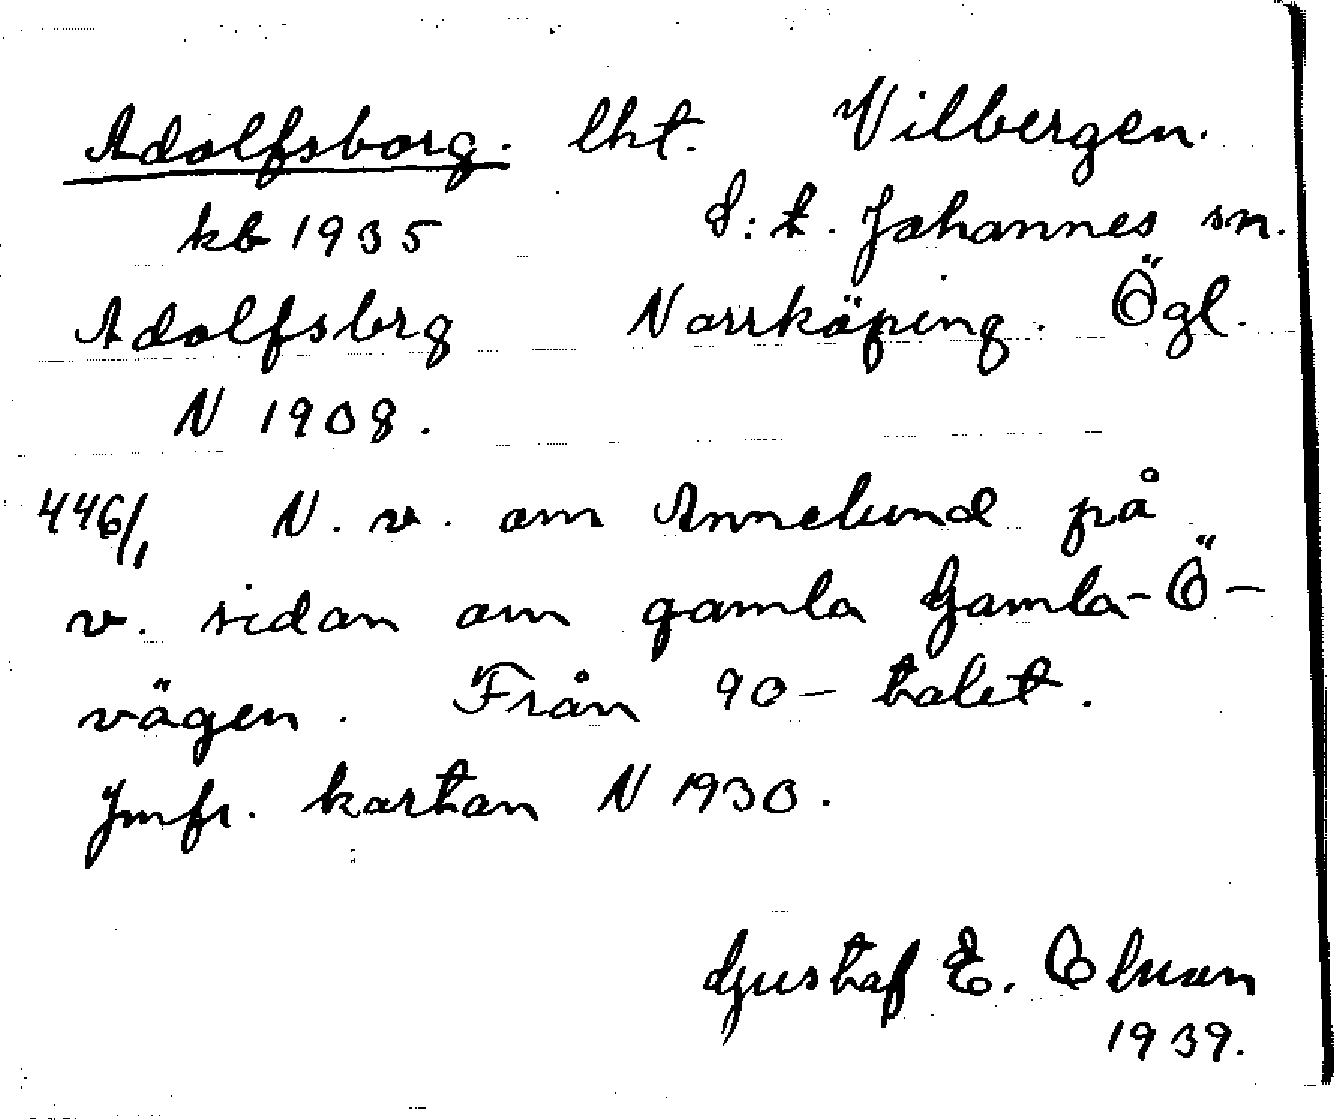 Adolfsborg. lht. Vilbergen.
kb 1935 S:t. Johannes sn.
Adolfsbrg Norrköping. Ögl.
N 1908.
446/1 N. v. om Annelund på
v. sidan om gamla Gamla-Ö-
vägen. Från 90-talet.
Jmfr. kartan N 1930.
Gustaf E.
1939.